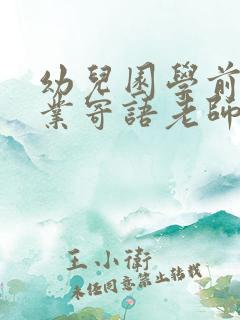 幼兒園學前
業寄語老師
王小衛
未经同意禁止转载